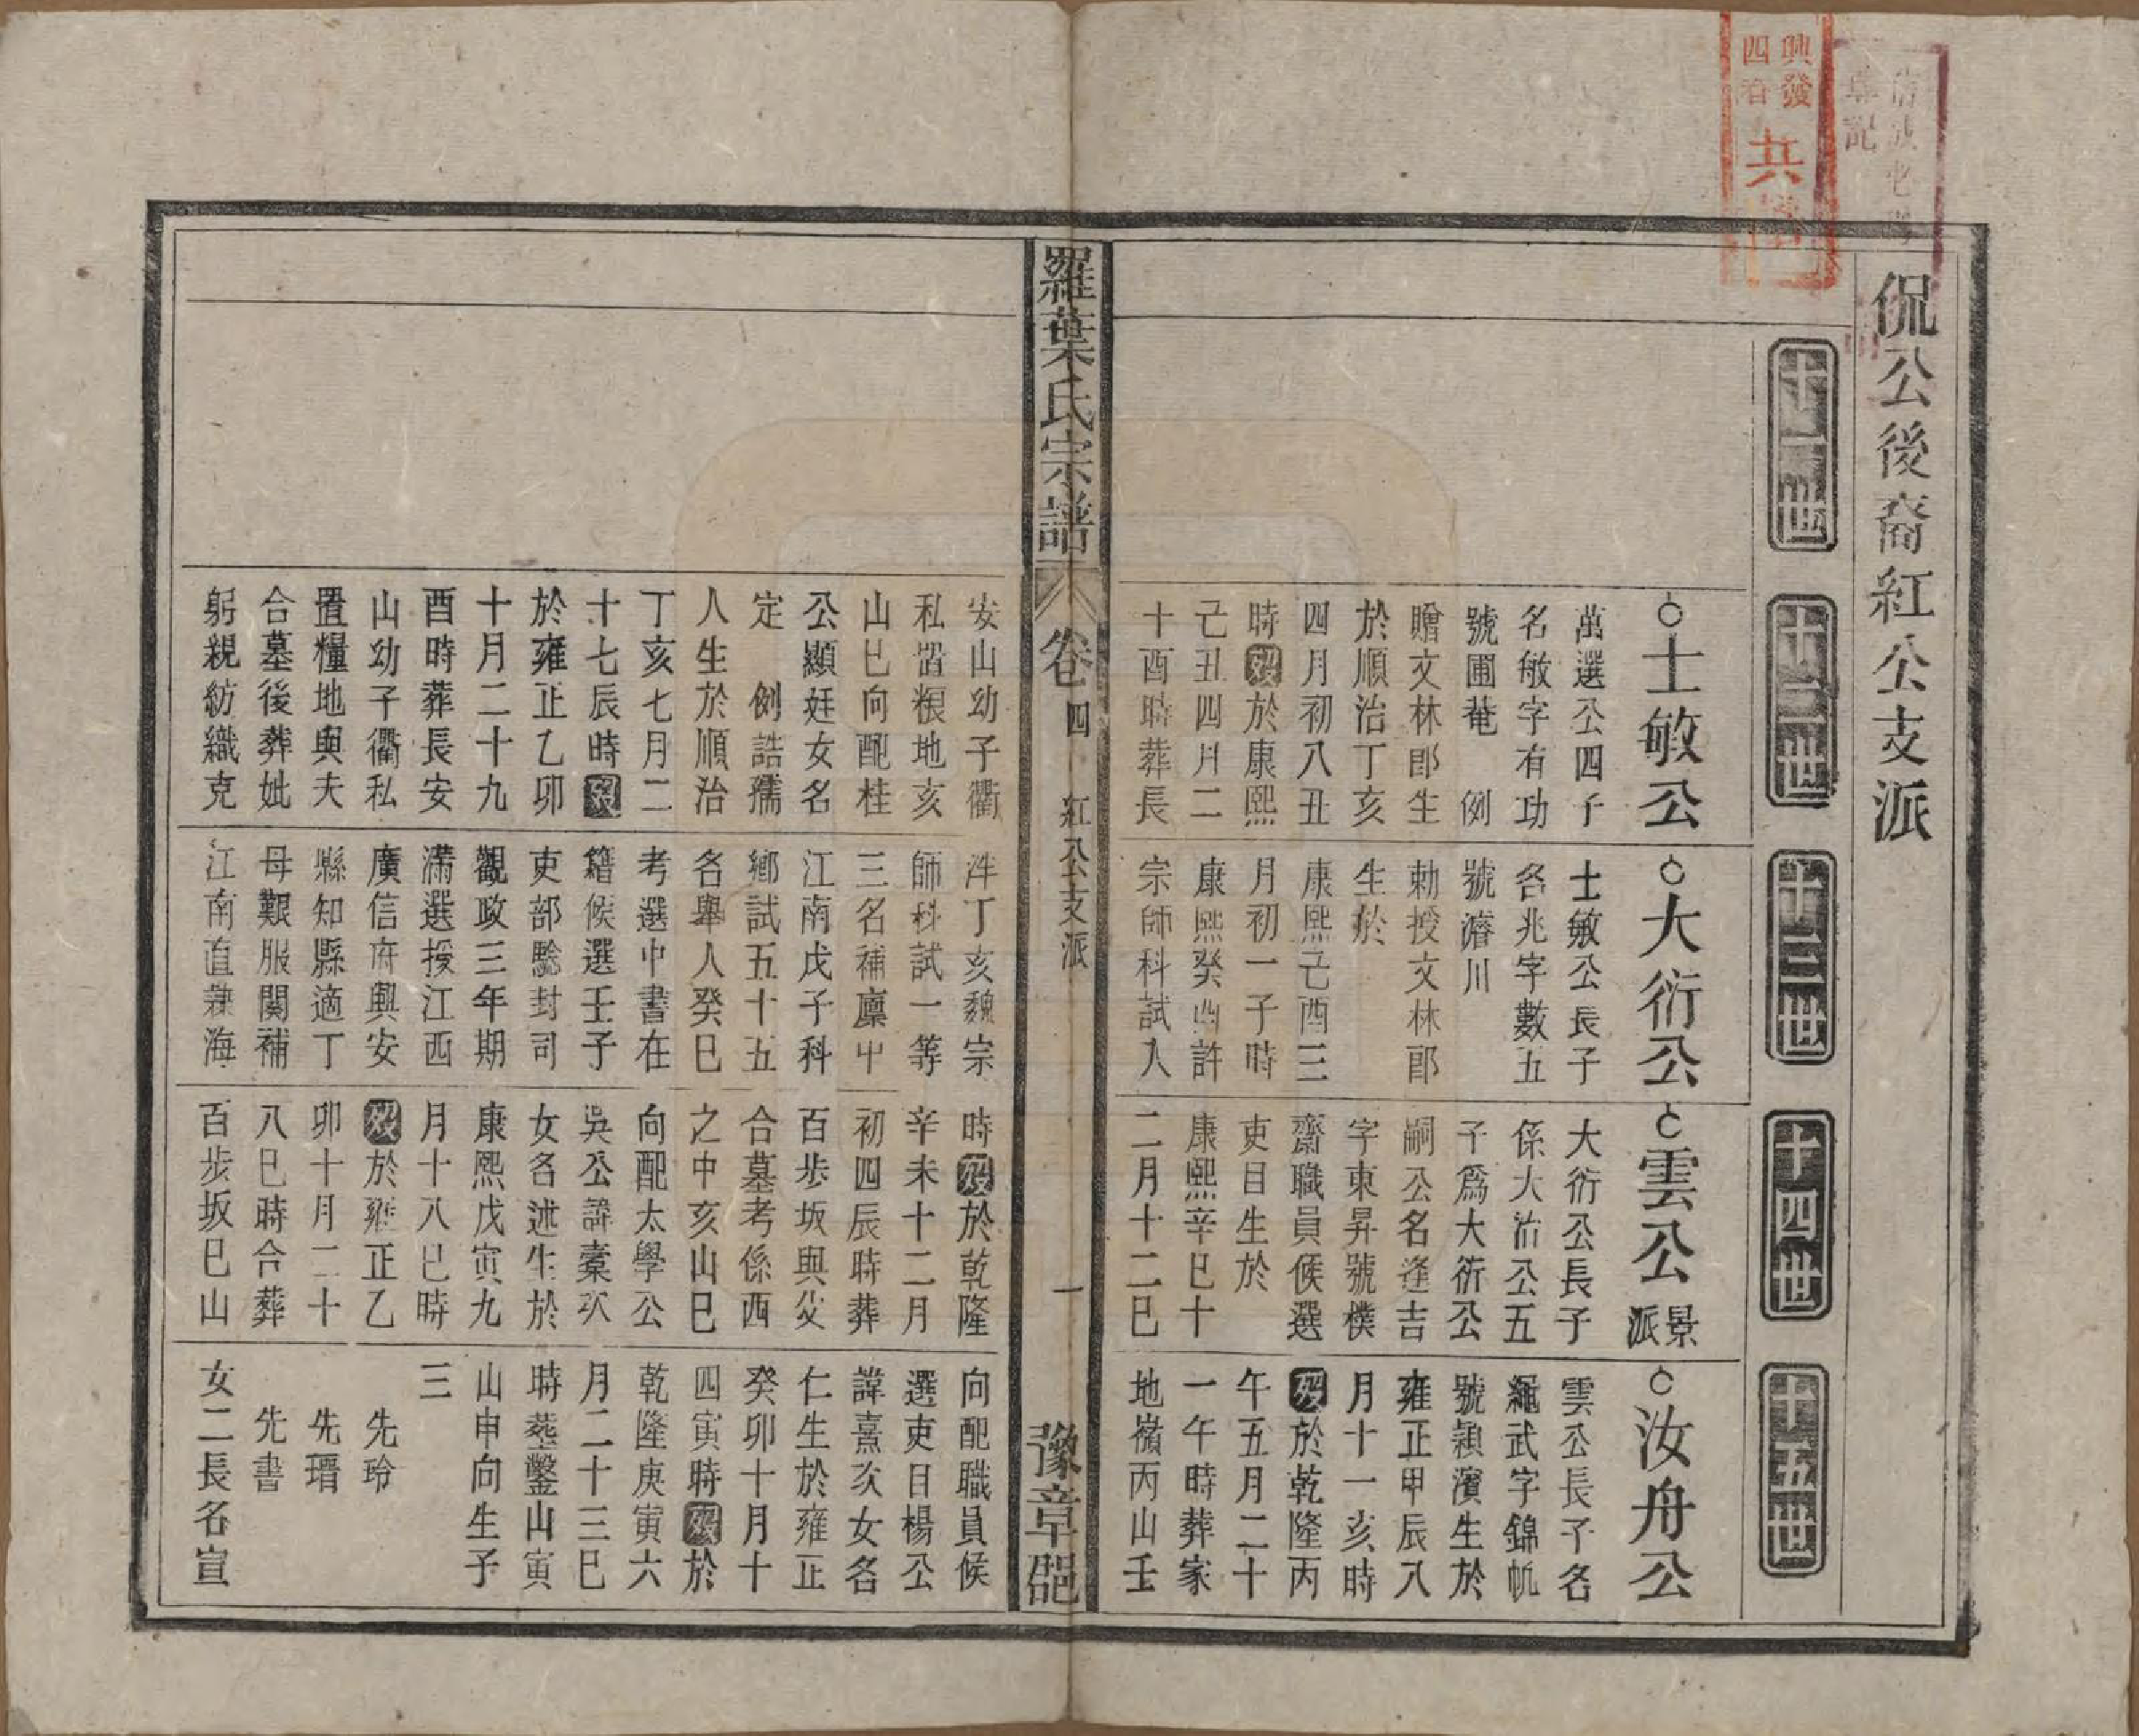 侃公後裔紅公支派
十一世
十二世
十三世
十四世
十五世
士敏公
萬選公四子
名敏字有功
號圃菴 例
贈文林郎生
於順治丁亥
四月初八丑
時歿於康熙
己丑四月二
十酉時葬長
安山幼子衢
私置糧地亥
山巳向配桂
公顯廷女名
定 例誥孺
人生於順治
丁亥七月二
十七辰時歿
於雍正乙卯
十月二十九
酉時葬長安
山幼子衢私
置糧地與夫
合墓後葬妣
躬親紡織克
大衍公
士敏公長子
名兆字數五
號濬川
勅授文林郎
生於
康熙己酉三
月初一子時
康熙癸酉許
宗師科試入
泮丁亥魏宗
師科試一等
三名補廩中
江南戊子科
鄉試五十五
名舉人癸巳
考選中書在
籍候選壬子
吏部驗封司
觀政三年期
滿選授江西
廣信府興安
縣知縣適丁
母艱服闋補
江南直隸海
雲公景派
大衍公長子
係大治公五
子爲大衍公
嗣公名逢吉
字東昇號樸
齋職員候選
吏目生於
康熙辛巳十
二月十二巳
時歿於乾隆
辛未十二月
初四辰時葬
百步坂與父
合墓考係酉
之中亥山巳
向配太學公
吳公諱橐次
女名述生於
康熙戊寅九
月十八巳時
歿於雍正乙
卯十月二十
八巳時合葬
百步坂巳山
汝舟公
雲公長子名
繩武字錦帆
號穎濱生於
雍正甲辰八
月十一亥時
歿於乾隆丙
午五月二十
一午時葬家
地嶺丙山壬
向配職員候
選吏目楊公
諱熹次女名
仁生於雍正
癸卯十月十
四寅時歿於
乾隆庚寅六
月二十三巳
時塟鑿山寅
山申向生子
三
先玲
先瑨
先書
女二長名宣
羅葉氏宗譜
卷四
紅公支派
一
豫章郡